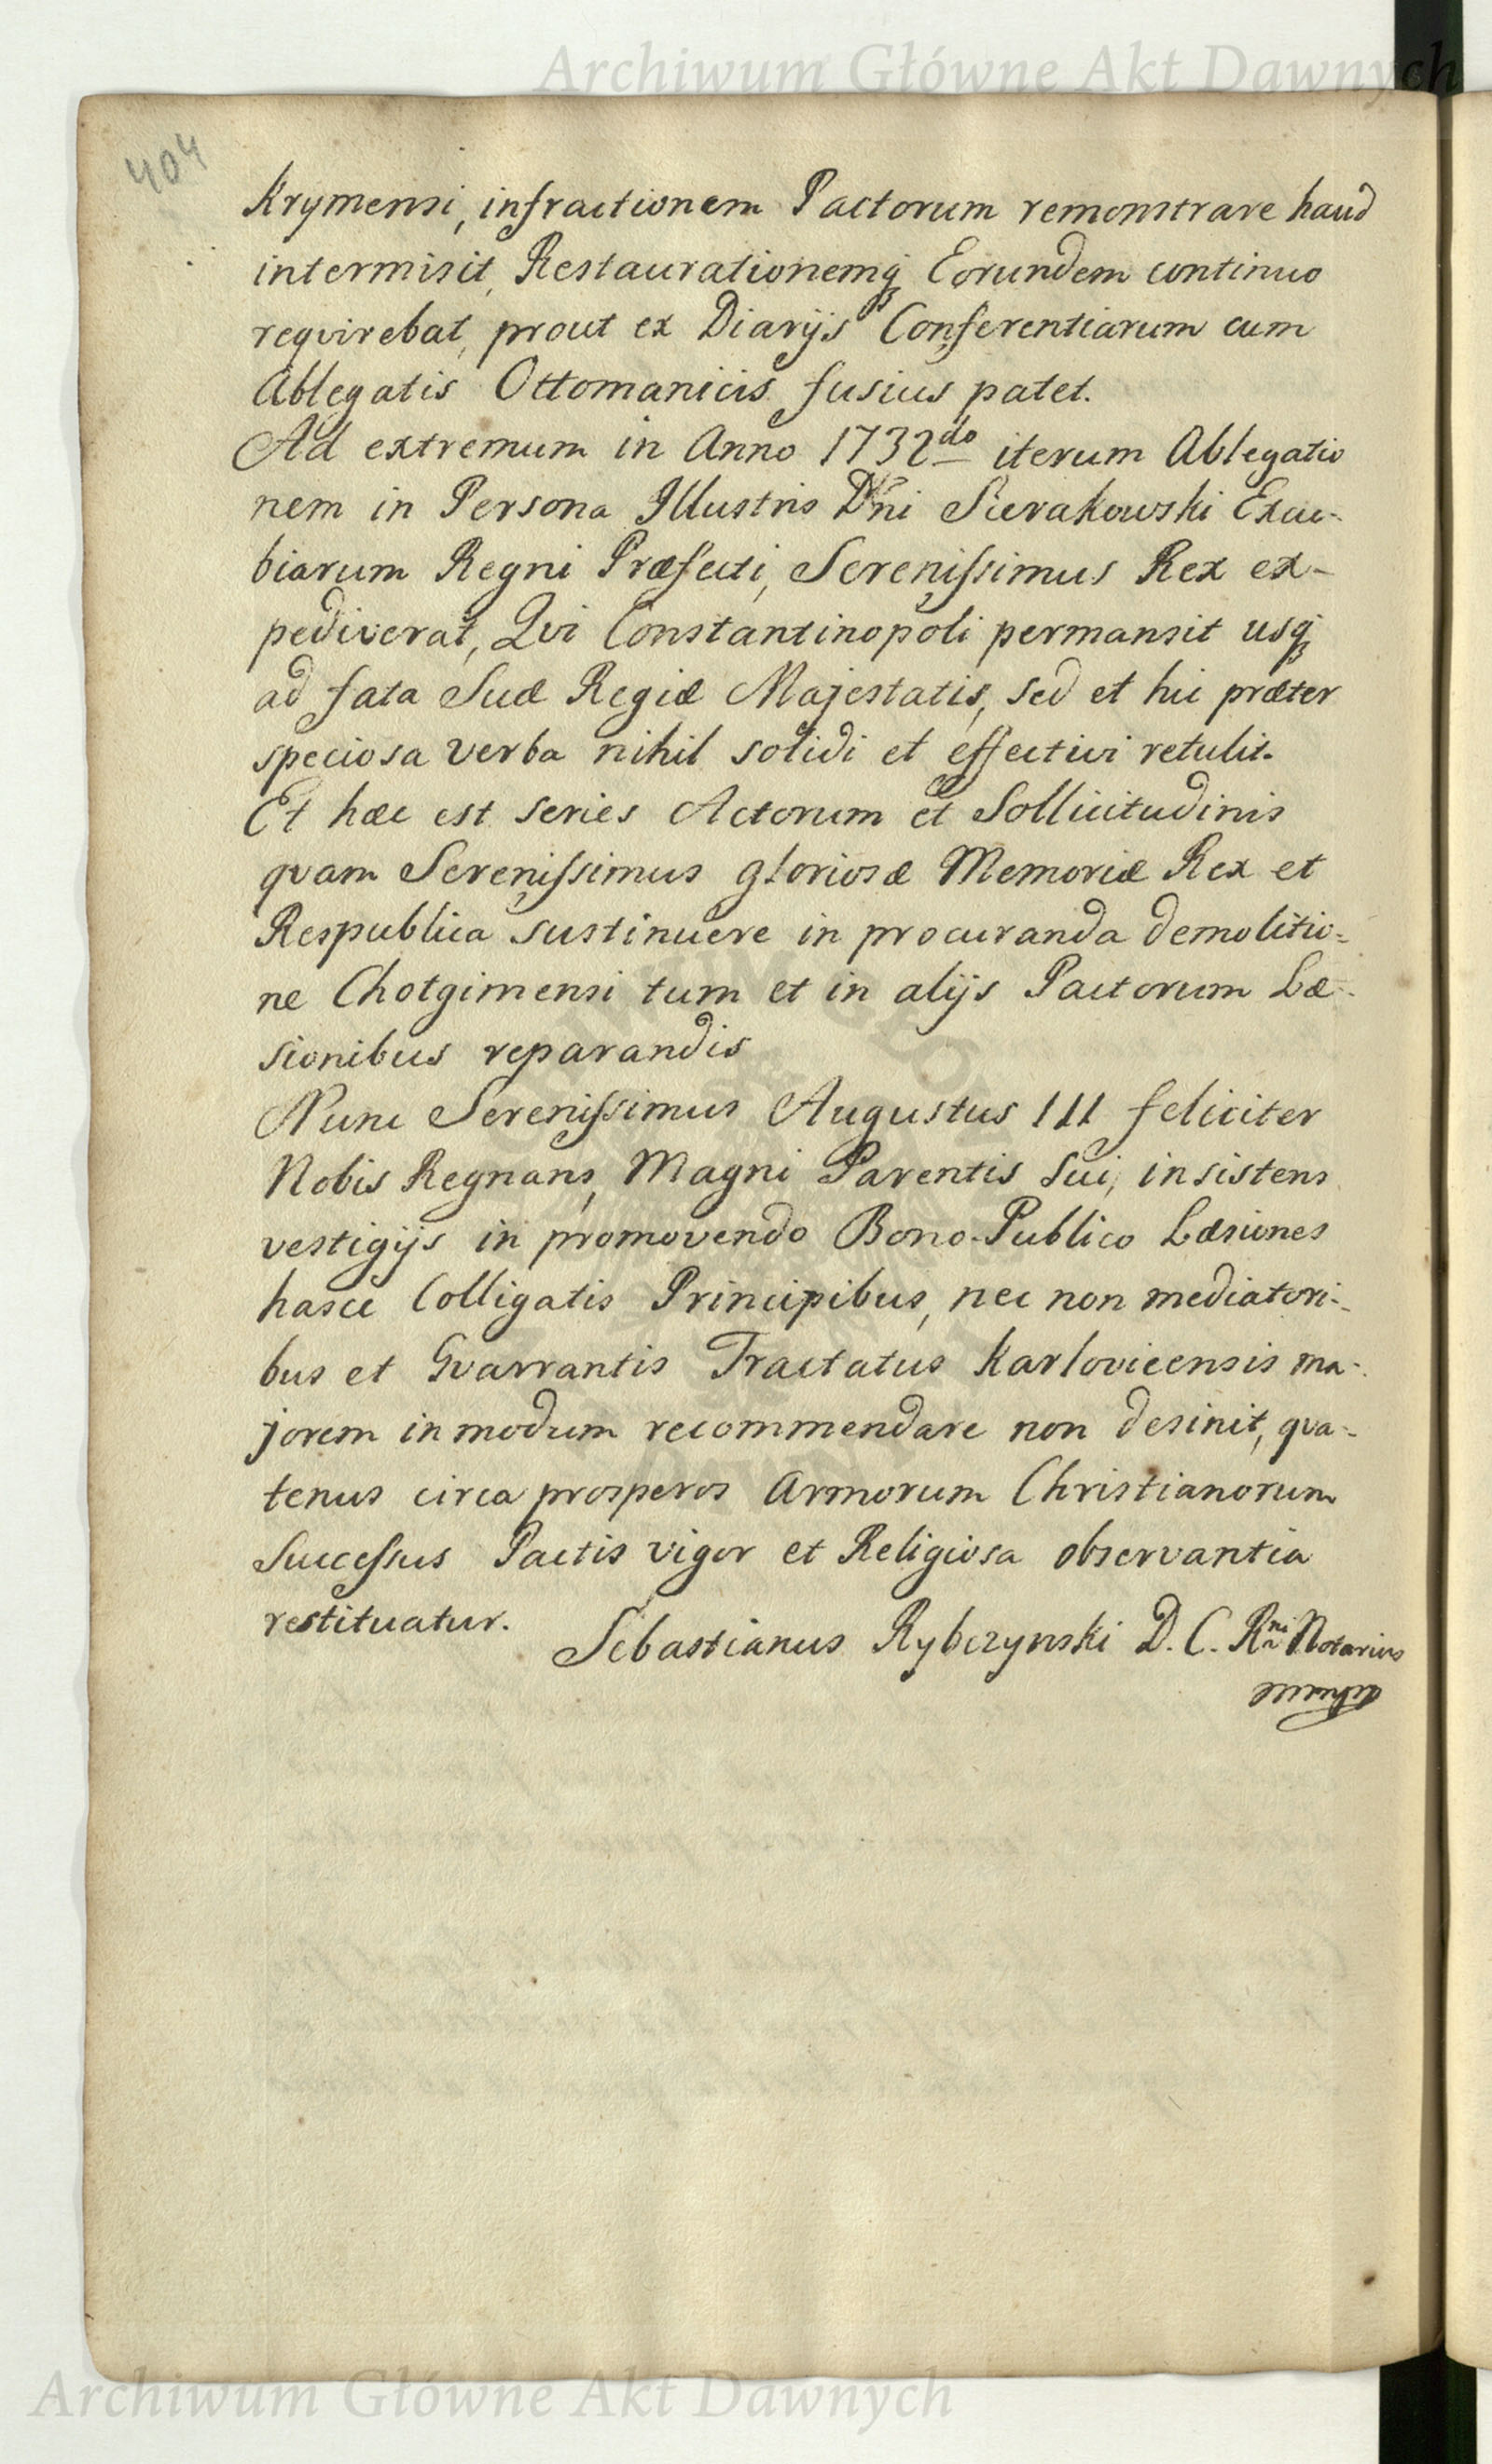 Archiwum Główne Akt Dawnych
404
Krymensi, infractionem Pactorum remonstrare haud
intermisit, Restaurationemq̃ Eorundem continuo
reqvirebat, prout ex Diarijs Conferentiarum cum
Ablegatis Ottomanicis fusius patet.
Ad extremum in Anno 1732do iterum Ablegatio
nem in Persona Illustris Dñi Sierakowski Excu-
biarum Regni Præfecti, Serenissimus Rex ex-
pediverat, Qvi Constantinopoli permansit usq̃
ad fata Suæ Regiæ Majestatis, sed et hic præter
speciosa verba nihil solidi et effectivi retulit.
Et hæc est series Actorum et Sollicitudinis
qvam Serenissimus gloriosæ Memoriæ Rex et
Respublica sustinuere in procuranda demolitio=
ne Chotgimensi tum et in alijs Pactorum Læ-
sionibus reparandis
Nunc Serenissimus Augustus III feliciter
Nobis Regnans, Magni Parentis Sui, insistens
vestigijs in promovendo Bono Publico Læsiones
hasce Colligatis Principibus, nec non mediatori-
bus et Gvarrantis Tractatus Karlovicensis ma-
jorem in modum recommendare non desinit, qva-
tenus circa prosperos Armorum Christianorum
Successus Pactis vigor et Religiosa observantia
restituatur.
Sebastianus Rybczynski D. C. Rni Notarius
mmpp
Archiwum Główne Akt Dawnych